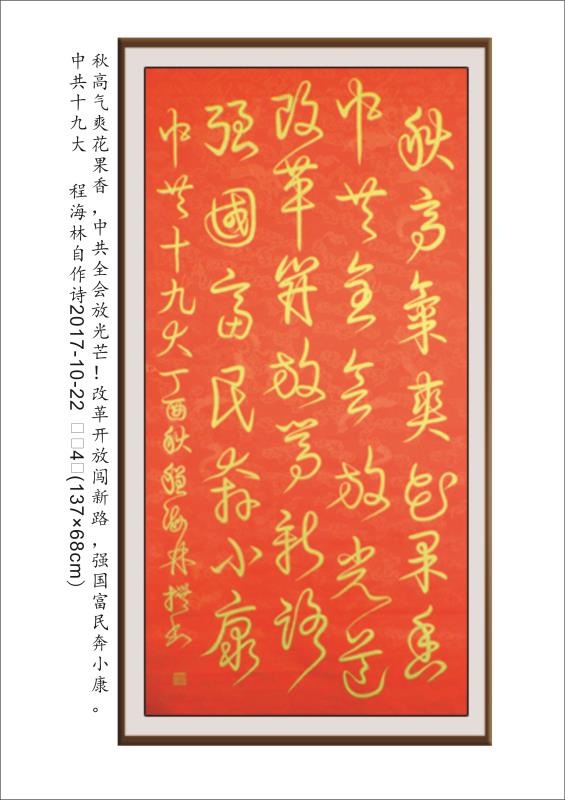 秋高氣爽花果香
中共全会放光芒
改革開放闯新路
强國富民奔小康
中共十九大丁酉秋程海林撰书
秋高气爽花果香,中共全会放光芒!改革开放闯新路,强国富民奔小康。
中共十九大 程海林自作诗2017-10-22 □□4□(137×68cm)